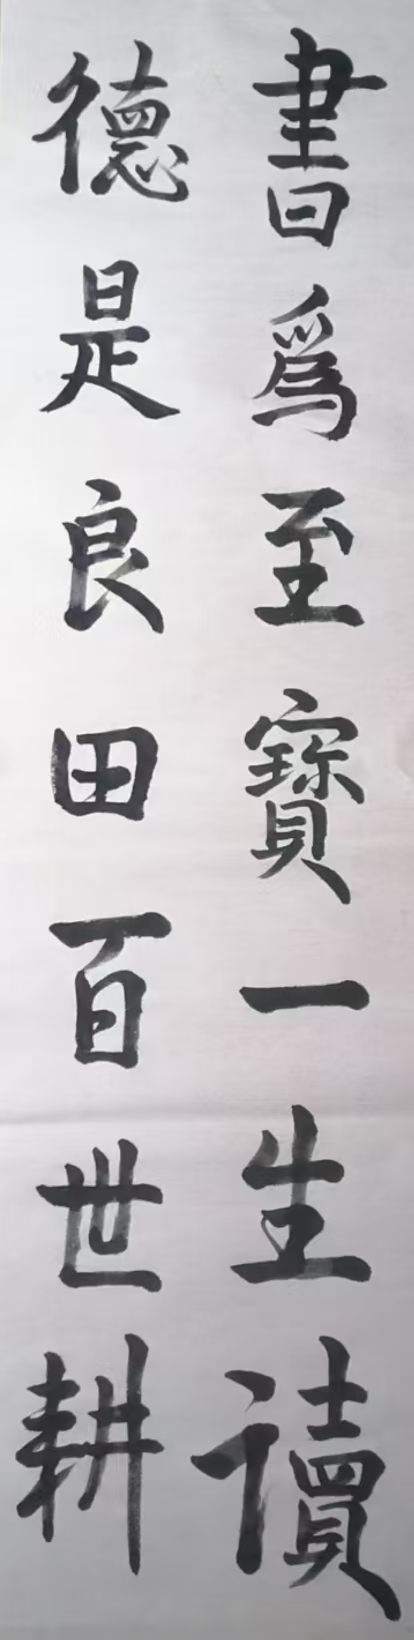 書爲至寶一生讀
德是良田百世耕